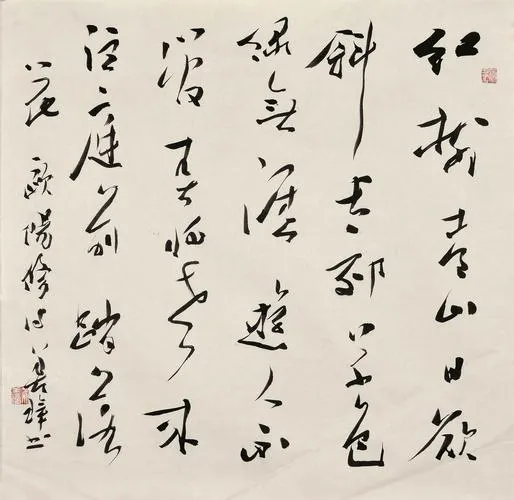 紅樹青山日欲
斜長郊草色
綠無涯遊人不
管春將老來
往亭前踏落
花 歐陽修詩 書